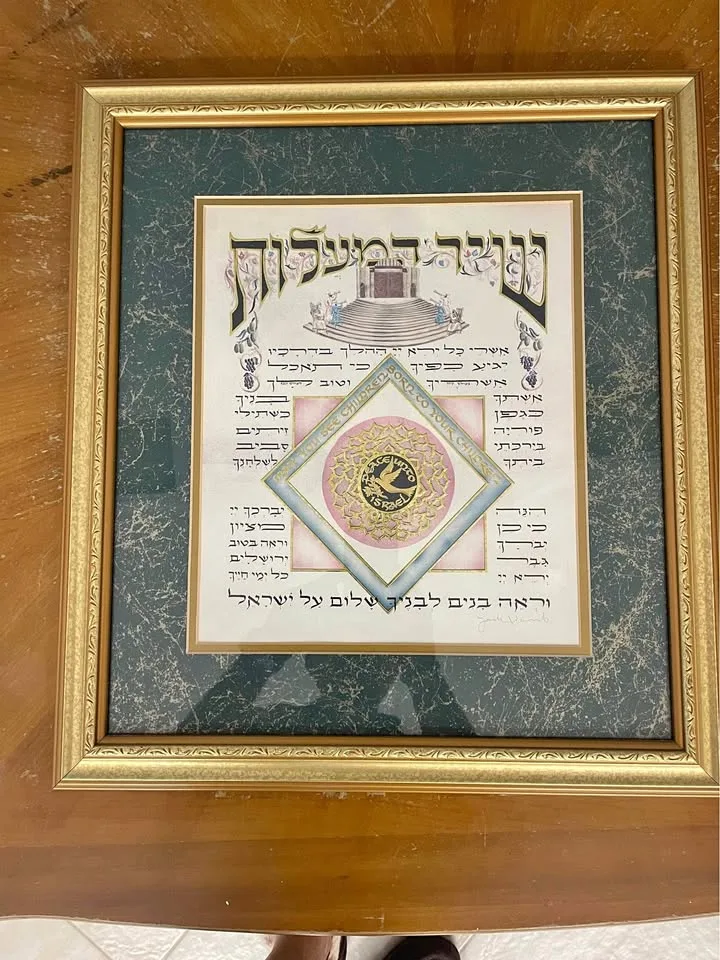 שיר המעלות
אשרי כל ירא יי ההלך בדרכיו
יגיע כפיך כי תאכל
אשריך וטוב לך
אשתך
כגפן
פוריה
בירכתי
ביתך
בניך
כשתילי
זיתים
סביב
לשלחנך
YOU SEE CHILDREN BORN TO YOUR CHILDREN
PEACE UNTO
ISRAEL
הנה
כי כן
יברך
גבר
ירא יי
יברכך יי
מציון
וראה בטוב
ירושלים
כל ימי חייך
וראה בנים לבניך שלום על ישראל